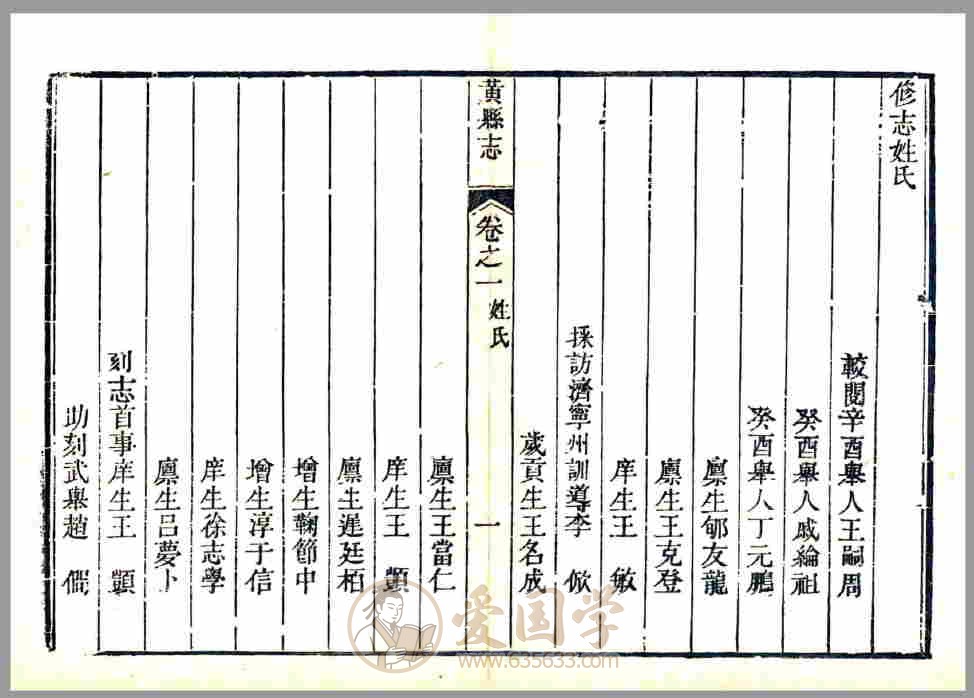 修志姓氏
較閱辛酉舉人王嗣周
癸酉舉人戚綸祖
癸酉舉人丁元鵬
廩生郇友龍
廩生王克登
庠生王 敏
採訪濟寧州訓導李
歲貢生王名成
黃縣志
卷之一 姓氏
一
廩生王當仁
庠生王
廩生遲廷栢
增生鞠節中
增生淳于信
庠生徐志學
廩生呂夢卜
刻志首事庠生王
助刻武舉趙
爱国学
www.635633.com